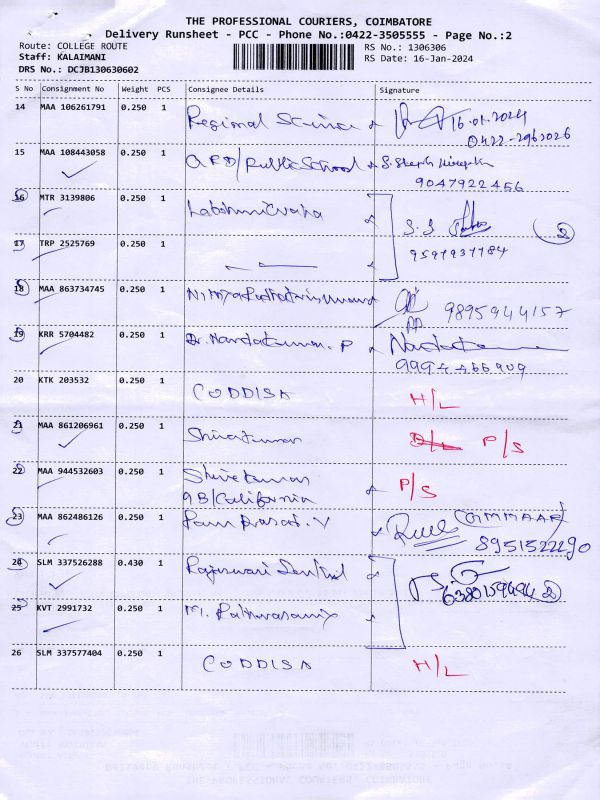 THE PROFESSIONAL COURIERS, COIMBATORE
Delivery Runsheet - PCC - Phone No.:0422-3505555 - Page No.:2
Route: COLLEGE ROUTE
RS No.: 1306306
Staff: KALAIMANI
RS Date: 16-Jan-2024
DRS No.: DCJB130630602
S No Consignment No Weight PCS Consignee Details Signature
14 MAA 106261791 0.250 1 Regional Science 16.01.2024
0422-2962026
15 MAA 108443058 0.250 1 Public School
9047922456
16 MTR 3139806 0.250 1 S.S
2
17 TRP 2525769 0.250 1 9597931784
18 MAA 863734745 0.250 1 9895944157
19 KRR 5704482 0.250 1 Dr. Nandakumar. P
20 KTK 203532 0.250 1 CODDISA H/L
21 MAA 861206961 0.250 1 Shivakumar D/L P/S
22 MAA 944532603 0.250 1 Shivakumar P/S
9B/California
23 MAA 862486126 0.250 1 Ram Prasad. V
8951522290
24 SLM 337526288 0.430 1 Rajeswari Dental
2
25 KVT 2991732 0.250 1
26 SLM 337577404 0.250 1 CODDISA H/L